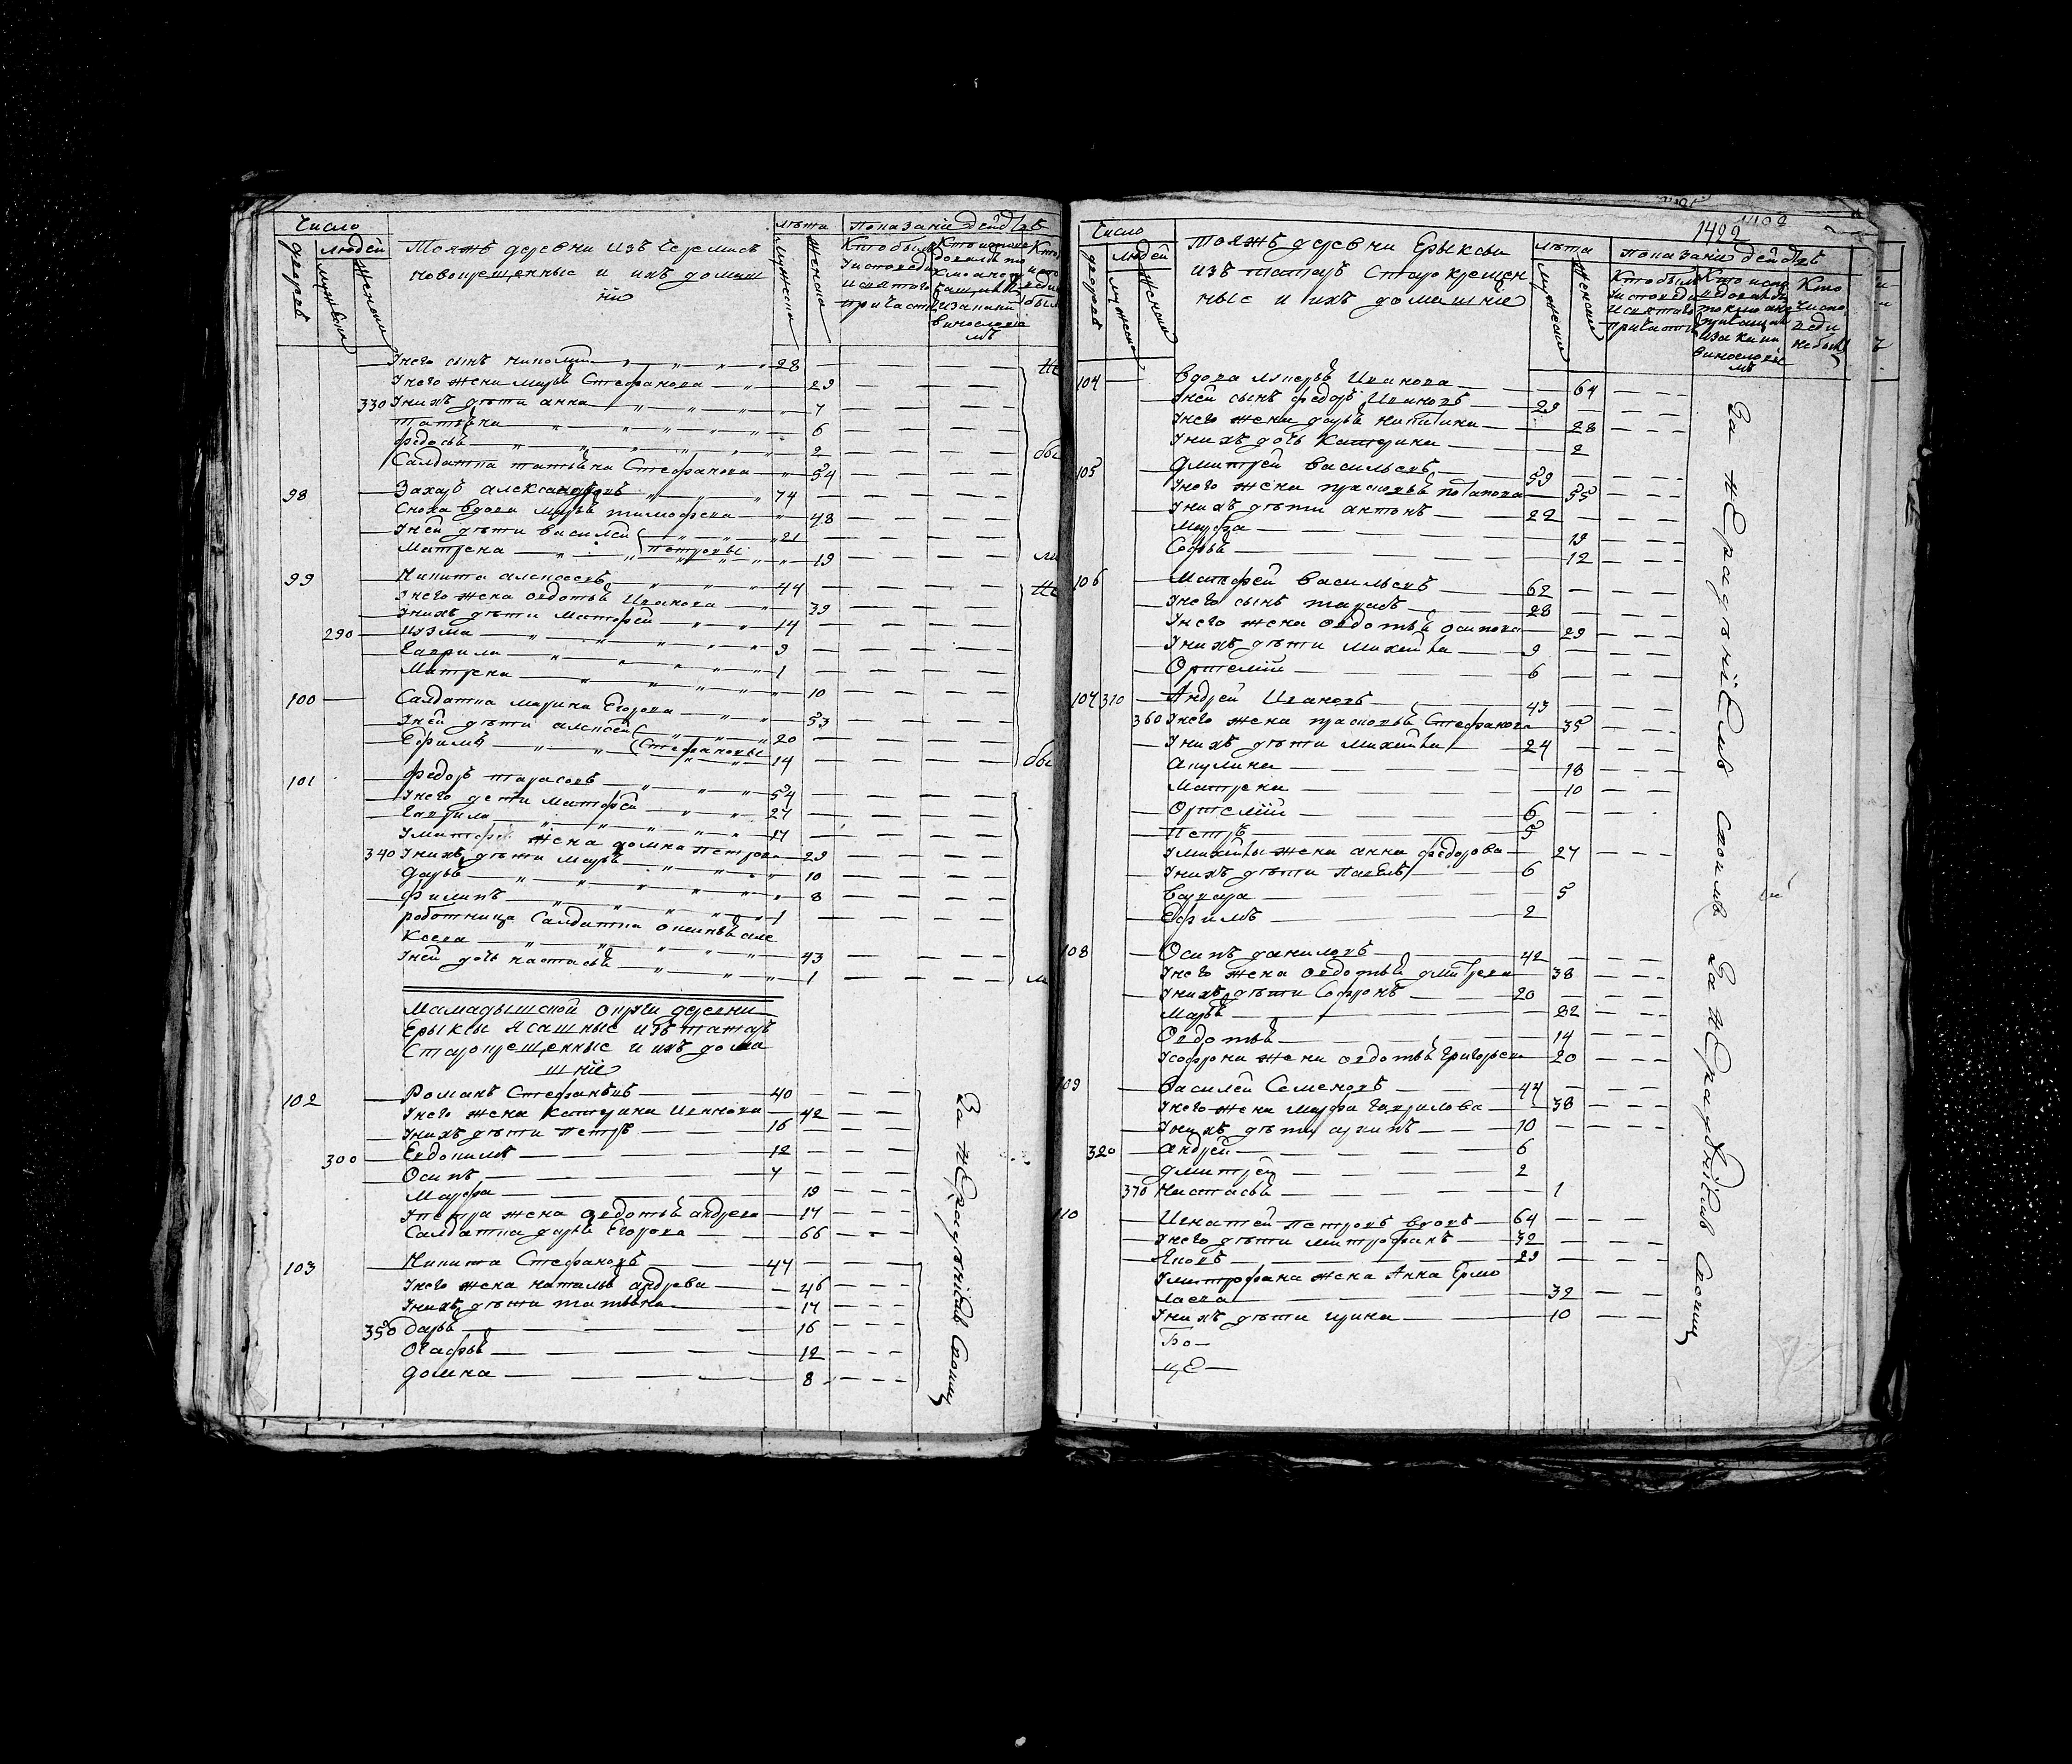 Число
дворовъ
людей
мужеска
женска
Тояжъ деревни изъ черемисъ
новокрещенные и ихъ домаш
нiе
лѣта
мужеска
женска
показанiе действъ
Унего сынъ николай 28
Унего жена марья Стефанова 29
330 Унихъ дѣти анна 7
татьяна 6
федосья 2
Салдатка татьяна Стефанова 54
98 Захаръ александровъ 74
Сноха вдова марья тимофеева 48
Уней дѣти василей 21
Матрена петровы 19
99 Никита алексеевъ 44
Унего жена овдотья Иванова 39
Унихъ дѣти Матфей 14
290 кузма 9
гаврила 1
Матрена 10
100 Салдатка марина Егорова 53
Уней дѣти алексей 20
Ефимъ Стефановы 14
101 федоръ тарасовъ 54
Унего дети Матфей 27
гаврила 17
Уматфея жена домна петрова 29
340 Унихъ дѣти марья 10
дарья 8
филипъ 1
работница Салдатка але
ксева 43
Уней дочь настасья 1
Мамадышской округи деревни
Ерыксы Ясашные изъ татаръ
Старокрещенные и ихъ дома
шнiе
102 Романъ Стефановъ 40
Унего жена катерина Иванова 42
Унихъ дѣти петръ 16
300 Евдокимъ 12
Осипъ 7
Марфа 19
Упетра жена овдотья андреева 17
Салдатка дарья Егорова 66
103 Никита Стефановъ 47
Унего жена наталья андреева 46
Унихъ дѣти татьяна 17
350 дарья 16
Огафья 12
домна 8
За нерадѣнiемъ своим
1422
Число
дворовъ
людей
мужеска
женска
тояжъ деревни Ерыксы
изъ татаръ Старокрещен
ные и ихъ домашнiе
лѣта
мужеска
женска
показанiе действъ
104 вдова лукерья Иванова 64
Уней сынъ федоръ Ивановъ 29
Унего жена дарья никитина 28
Унихъ дочь катерина 2
105 Дмитрей васильевъ 59
Унего жена прасковья потапова 55
Унихъ дѣти антонъ 22
Марфа 19
Софья 12
106 Матфей васильевъ 62
Унего сынъ тарасъ 28
Унего жена овдотья осипова 29
Унихъ дѣти михайла 9
Ортемiй 6
107 310 Андрей Ивановъ 43
360 Унего жена прасковья Стефанова 35
Унихъ дѣти михайла 24
Акулина 18
Матрена 10
Ортемiй 6
Петръ 5
Умихайлы жена анна федорова 27
Унихъ дѣти павелъ 6
варвара 5
Ефимъ 2
108 Осипъ даниловъ 42
Унего жена овдотья дмитреева 38
Унихъ дѣти Софронъ 20
Марья 22
Овдотья 14
Усофрона жена овдотья григорьева 20
109 Василей Семеновъ 44
Унего жена марфа гаврилова 38
Унихъ дѣти архипъ 10
320 андрей 6
дмитрей 2
370 Настасья 1
110 Игнатей петровъ вдовъ 64
Унего дѣти митрофанъ 32
Яковъ 29
Умитрофана жена Анна Ермо
лаева 32
Унихъ дѣти ирина 10
Бо-
це-
За нерадѣнiемъ своимъ За нерадѣнiемъ своим